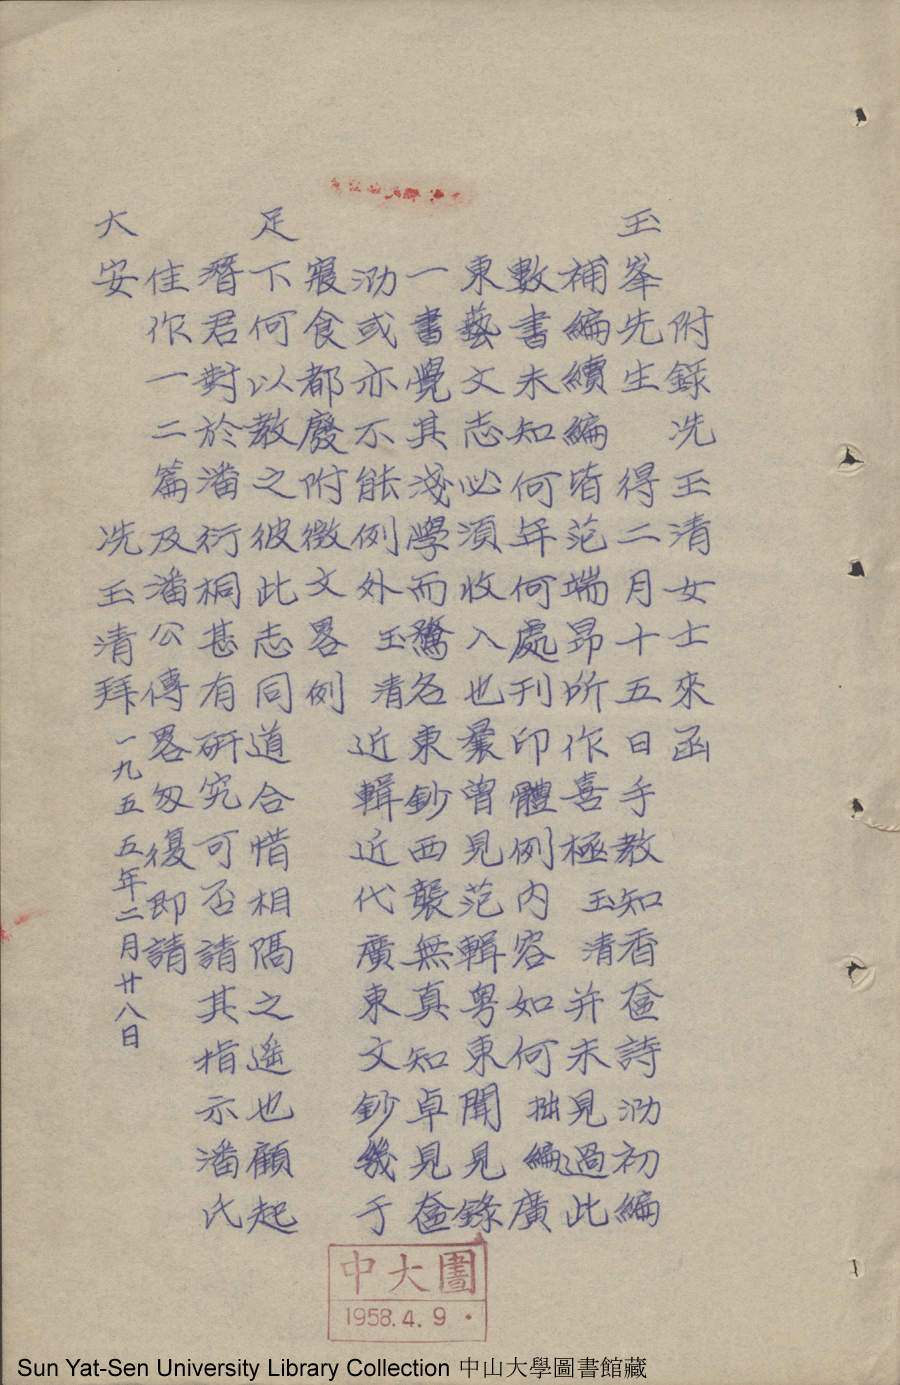 附錄冼玉清女士來函
玉峯先生　得二月十五日手教知香奩詩泐初編
補編續編皆范端昂所作喜極玉清并未見過此
數書未知何年何處刊印體例内容如何拙編廣
東藝文志必須收入也曩曾見范輯粤東聞見錄
一書覺其淺學而驚名東鈔西襲無真知卓見奩
泐或亦不能例外玉清　近輯近代廣東文鈔幾于
寢食都廢附徴文畧例
足下何以教之彼此志同道合惜相隔之遥也顧起
潛君對於潘衍桐甚有研究可否請其指示潘氏
佳作一二篇及潘公傳畧匆復即請
大安　　冼玉清拜一九五五年二月廿八日
中大圕
1958.4.9
Sun Yat-Sen University Library Collection 中山大學圖書館藏